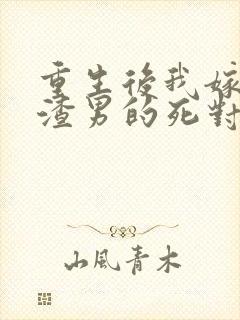 重生後我嫁
渣男的死對
山風青木